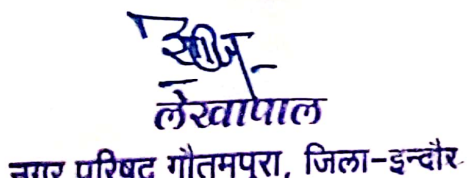 लेखापाल
नगर परिषद गौतमपुरा, जिला-इन्दौर